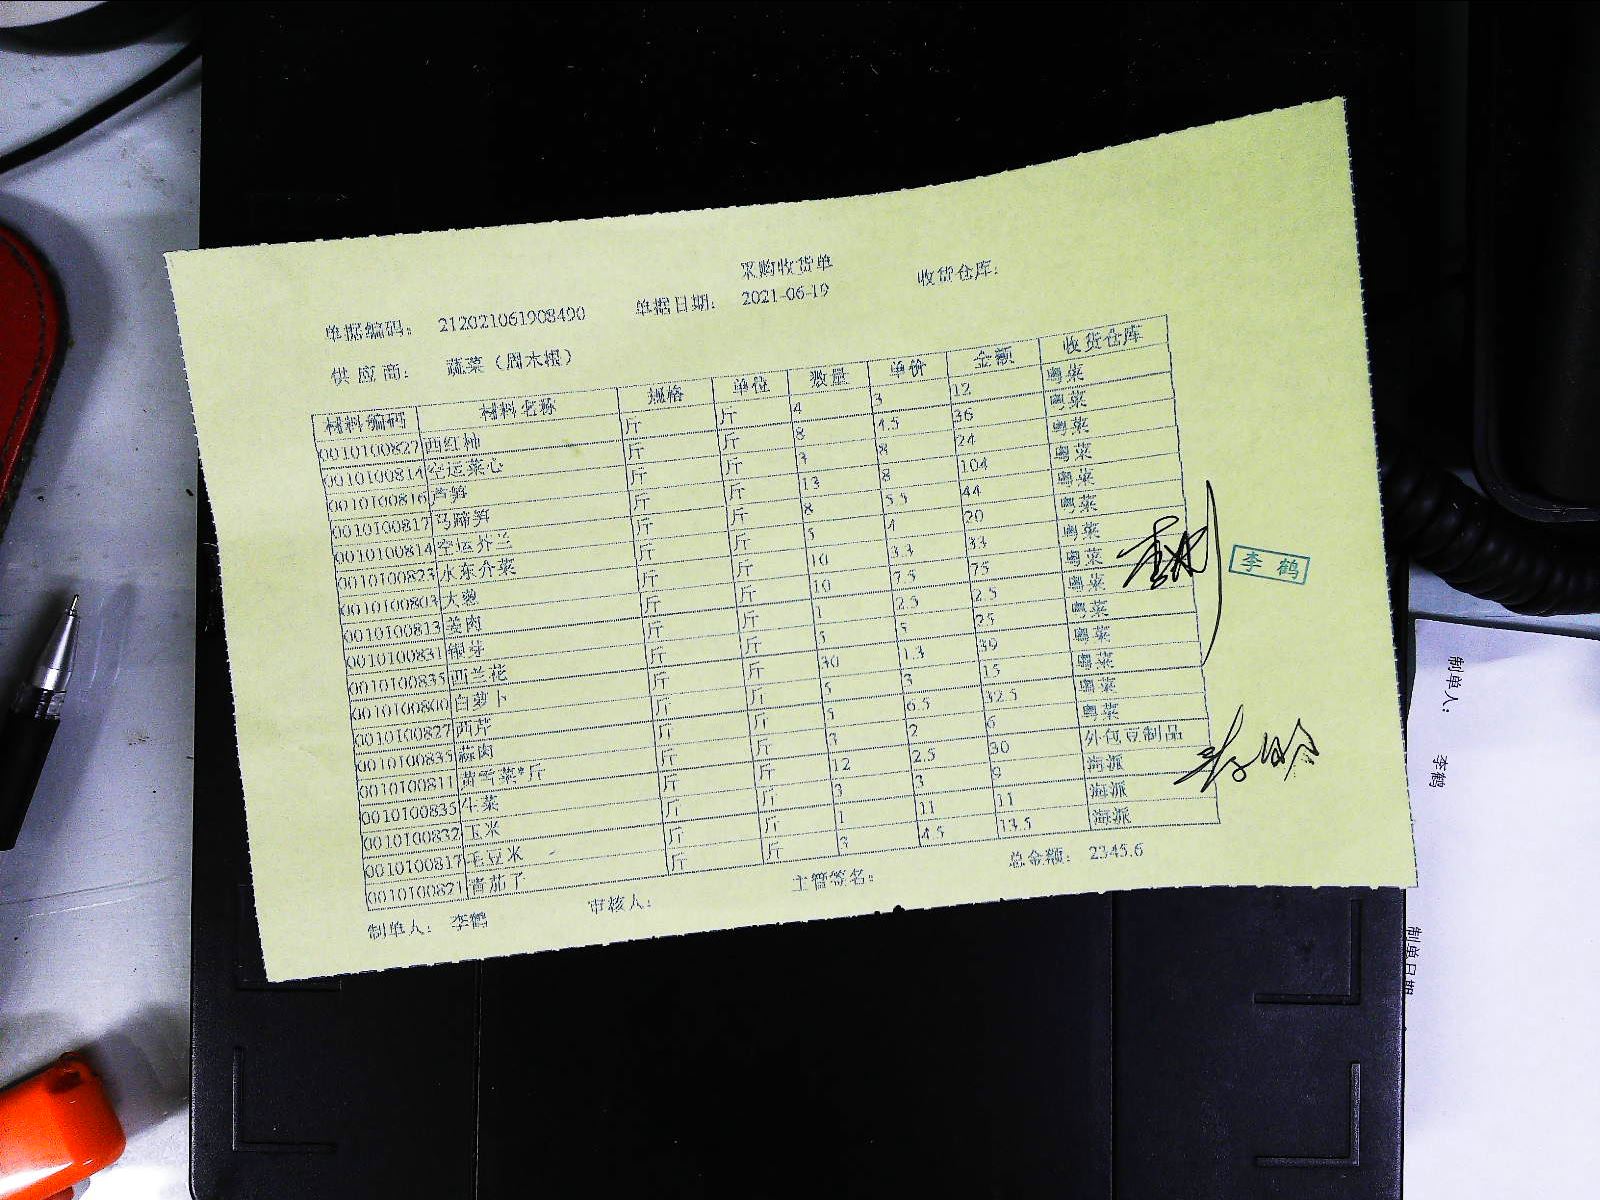 采购收货单
单据编码: 212021061908490 单据日期: 2021-06-19 收货仓库:
供应商: 蔬菜(周木根)
材料编码 材料名称 规格 单位 数量 单价 金额 收货仓库
0010100827 西红柿 斤 斤 4 3 12 粤菜
0010100814 空运菜心 斤 斤 8 4.5 36 粤菜
0010100816 芦笋 斤 斤 3 8 24 粤菜
0010100817 马蹄笋 斤 斤 13 8 104 粤菜
0010100814 空运芥兰 斤 斤 8 5.5 44 粤菜
0010100823 水东芥菜 斤 斤 5 4 20 粤菜
0010100803 大葱 斤 斤 10 3.3 33 粤菜
0010100813 姜肉 斤 斤 10 7.5 75 粤菜
0010100831 银芽 斤 斤 1 2.5 2.5 粤菜
0010100835 西兰花 斤 斤 5 5 25 粤菜
0010100800 白萝卜 斤 斤 30 1.3 39 粤菜
0010100827 西芹 斤 斤 5 3 15 粤菜
0010100835 蒜肉 斤 斤 5 6.5 32.5 粤菜
0010100811 黄豆菜*斤 斤 斤 3 2 6 粤菜
0010100835 生菜 斤 斤 12 2.5 30 外包豆制品
0010100832 玉米 斤 斤 3 3 9 海派
0010100817 毛豆米 斤 斤 1 11 11 海派
0010100821 青茄子 斤 斤 3 4.5 13.5 海派
总金额: 2345.6
制单人: 李鹤 审核人: 主管签名:
李鹤
制单人: 李鹤
制单日期